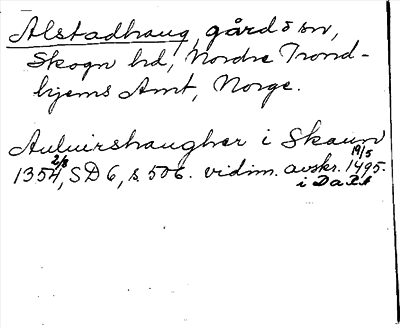 Alstadhaug, gård o sn,
Skogn hd, Nordre Trond-
hjems Amt, Norge.
Auluirshaugher i Skaun
1354 2/8, SD 6, s. 506. vidim. avskr. 1495 19/5.
i Da RA